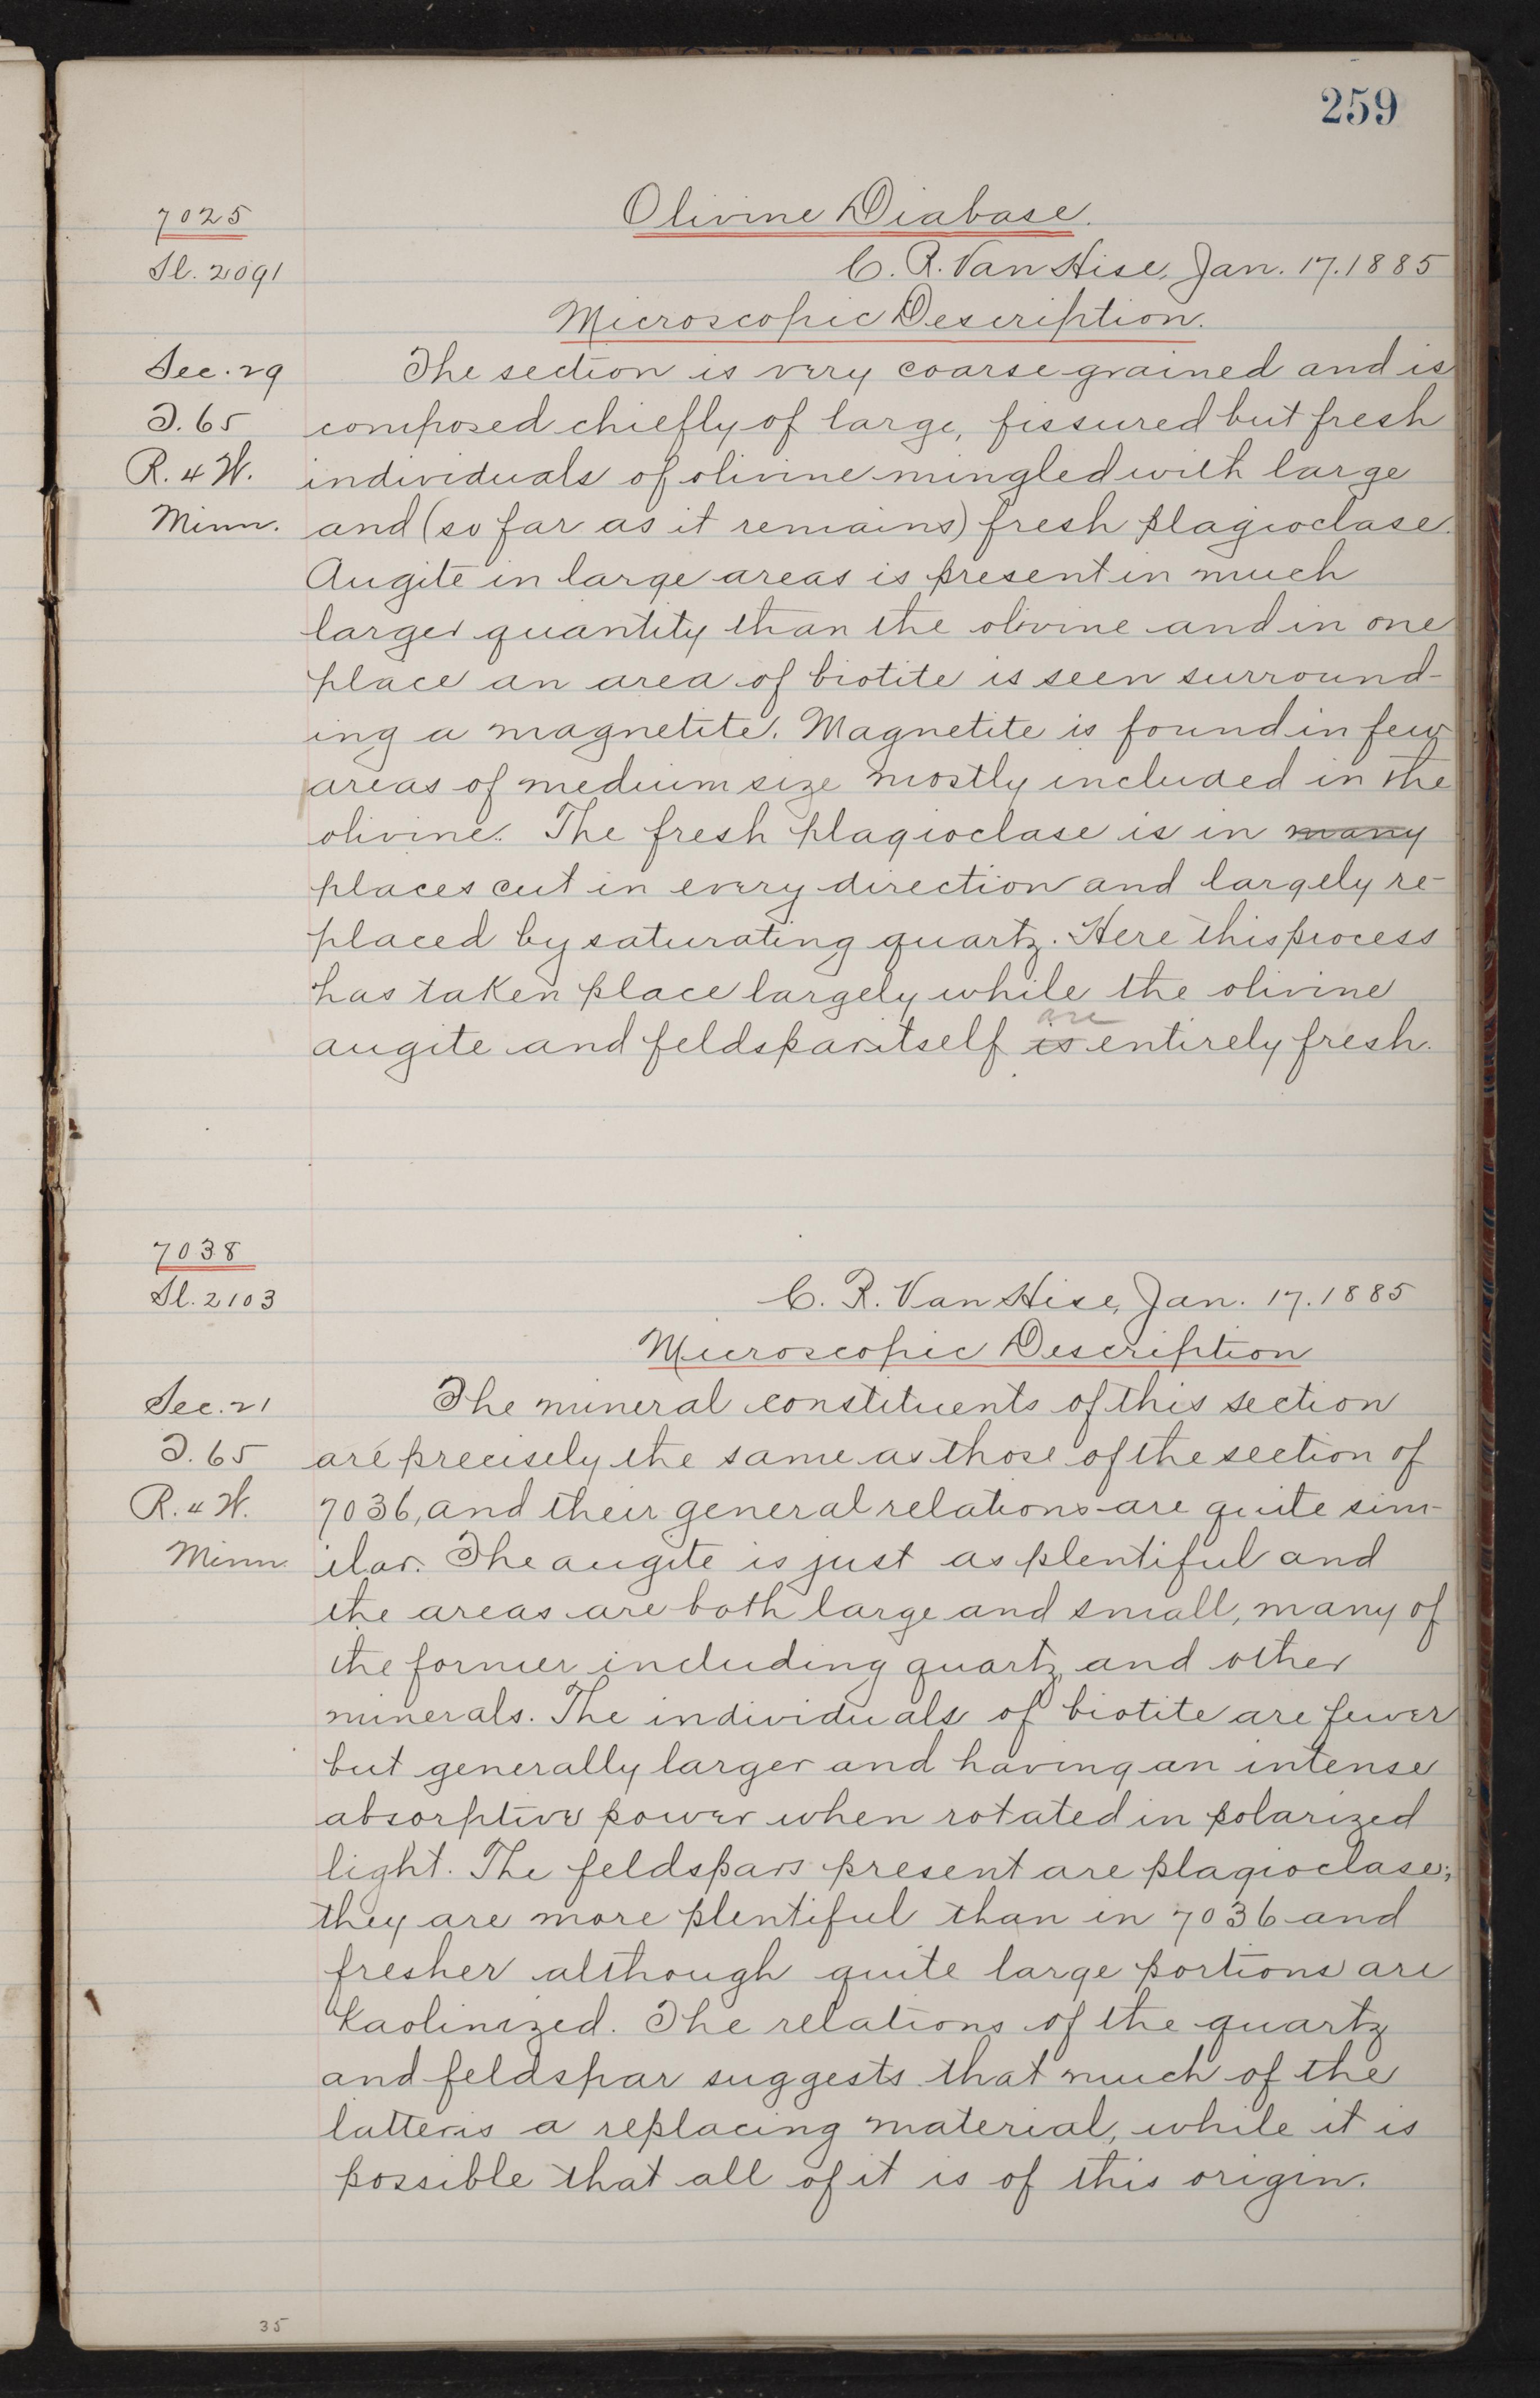 259
7025
Olivine Diabase.
Sl. 2091
C. R. Van Hise, Jan. 17. 1885
Microscopic Description.
Sec. 29
T. 65
R. 4 W.
Minn.
The section is very coarse grained and is
composed chiefly of large, fissured but fresh
individuals of olivine mingled with large
and (so far as it remains) fresh plagioclase.
Augite in large areas is present in much
larger quantity than the olivine and in one
place an area of biotite is seen surround-
ing a magnetite. Magnetite is found in few
areas of medium size mostly included in the
olivine. The fresh plagioclase is in many
places cut in every direction and largely re-
placed by saturating quartz. Here this process
has taken place largely while the olivine
are
augite and feldspar itself is entirely fresh.
7038
Sl. 2103
C. R. Van Hise, Jan. 17. 1885
Microscopic Description
Sec. 21
T. 65
R. 4 W.
Minn.
The mineral constituents of this section
are precisely the same as those of the section of
7036, and their general relations are quite sim-
ilar. The augite is just as plentiful and
the areas are both large and small, many of
the former including quartz and other
minerals. The individuals of biotite are fewer
but generally larger and having an intense
absorptive power when rotated in polarized
light. The feldspars present are plagioclase;
they are more plentiful than in 7036 and
fresher although quite large portions are
kaolinized. The relations of the quartz
and feldspar suggests that much of the
latter is a replacing material, while it is
possible that all of it is of this origin.
35